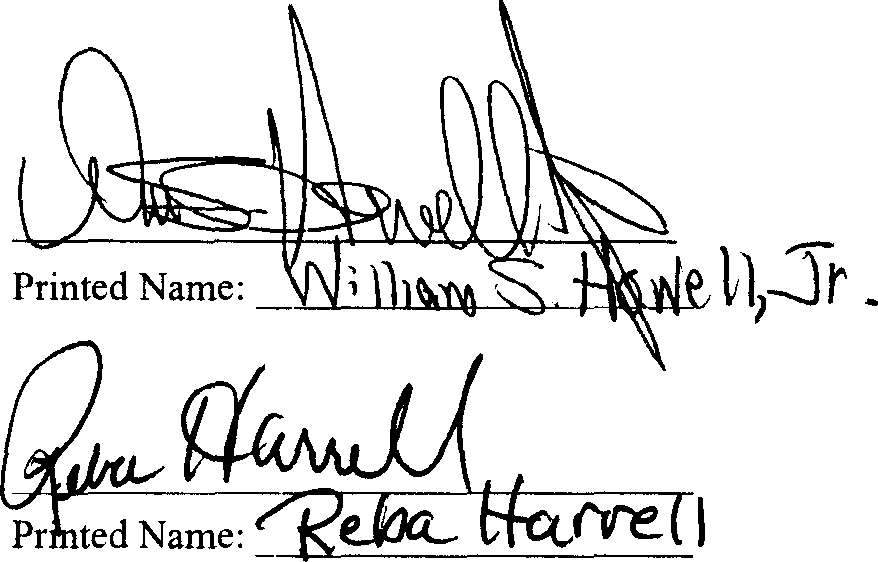 Wm S Howell Jr
Printed Name: William S. Howell, Jr.
Reba Harrell
Printed Name: Reba Harrell